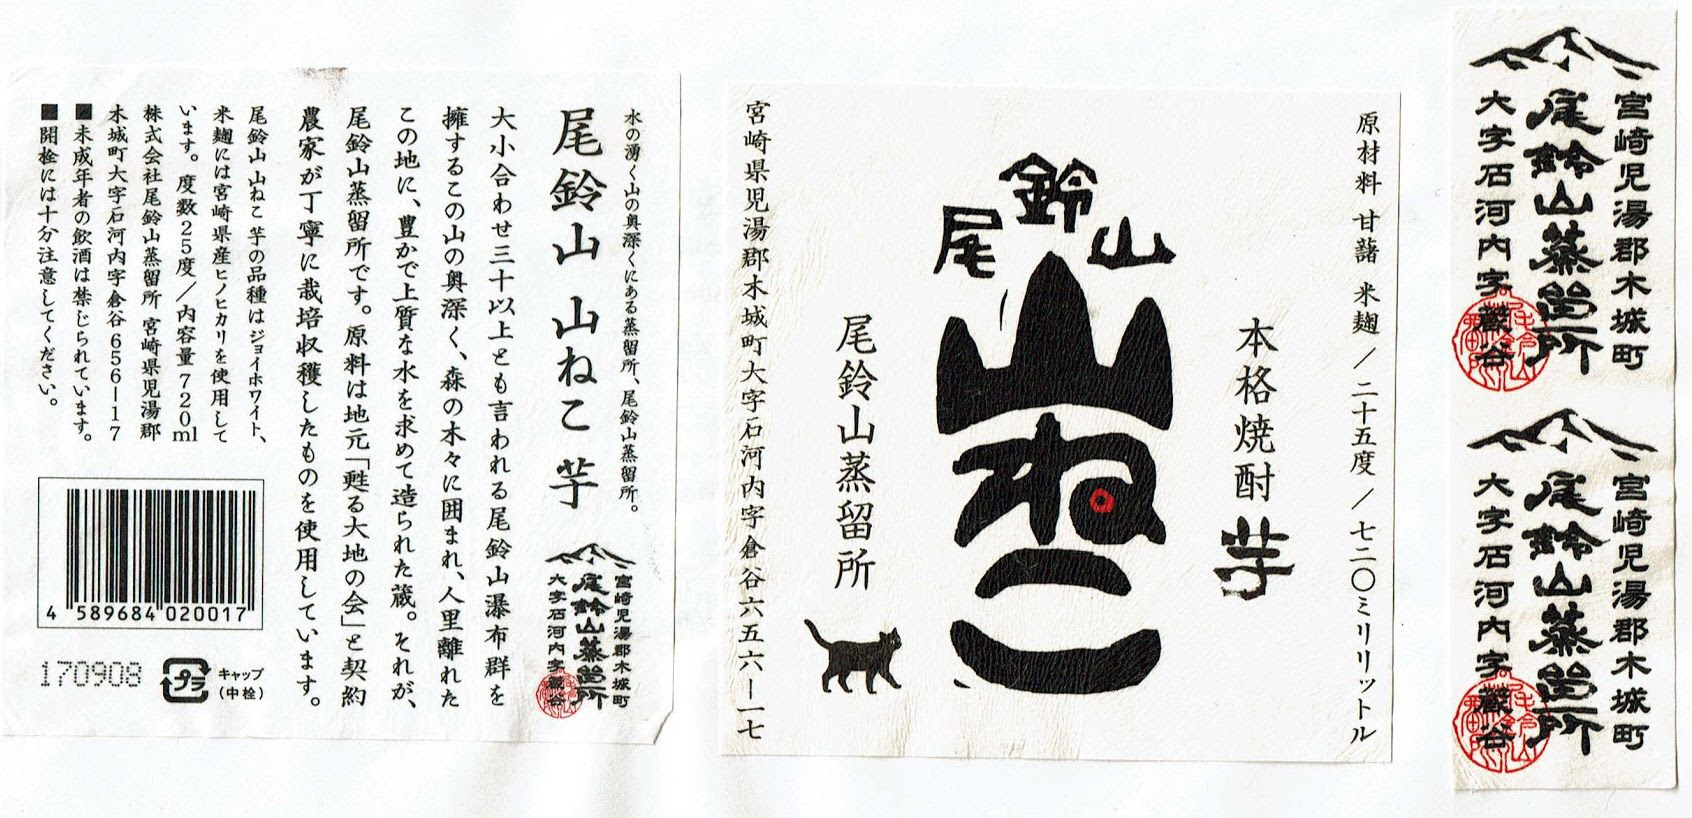 水の湧く山の奥深くにある蒸留所、尾鈴山蒸留所。
尾鈴山 山ねこ 芋
大小合わせ三十以上とも言われる尾鈴山瀑布群を
擁するこの山の奥深く、森の木々に囲まれ、人里離れた
この地に、豊かで上質な水を求めて造られた蔵。それが、
尾鈴山蒸留所です。原料は地元「甦る大地の会」と契約
農家が丁寧に栽培収穫したものを使用しています。
宮崎児湯郡木城町
尾鈴山蒸留所
大字石河内字蔵谷
尾鈴山 山ねこ 芋の品種はジョイホワイト、
米麹には宮崎県産ヒノヒカリを使用して
います。度数25度／内容量720ml
株式会社尾鈴山蒸留所 宮崎県児湯郡
木城町大字石河内字倉谷656-17
■未成年者の飲酒は禁じられています。
■開栓には十分注意してください。
4 589684 020017
170908
プラ
キャップ
(中栓)
原材料 甘藷 米麹／二十五度／七二〇ミリリットル
本格焼酎 芋
尾鈴山
山ねこ
尾鈴山蒸留所
宮崎県児湯郡木城町大字石河内字倉谷六五六ー一七
宮崎児湯郡木城町
尾鈴山蒸留所
大字石河内字蔵谷
宮崎児湯郡木城町
尾鈴山蒸留所
大字石河内字蔵谷